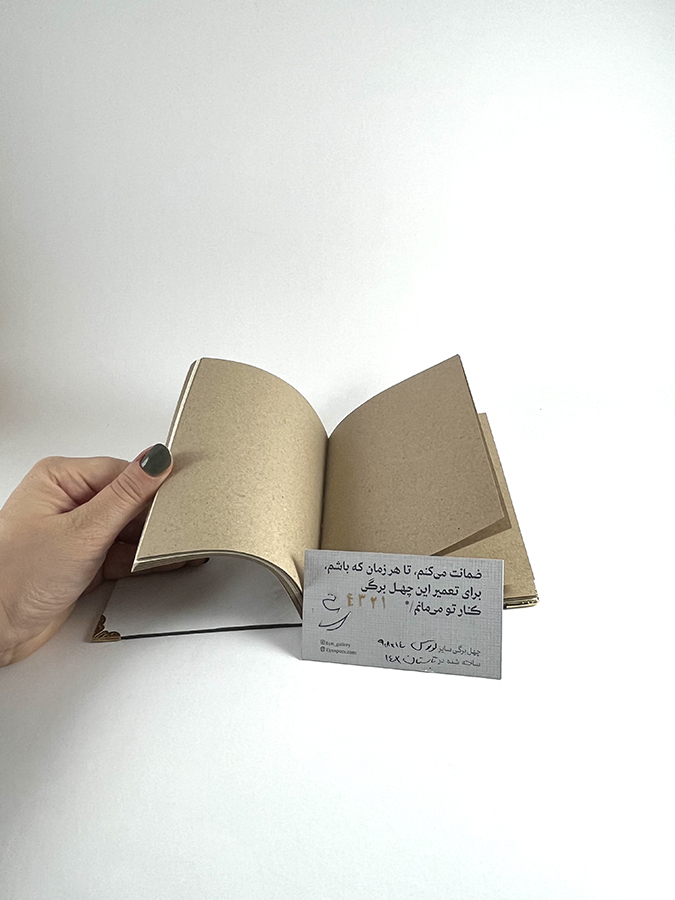 ضمانت می‌کنم، تا هر زمان که باشم،
برای تعمیر این چهل برگی
کنار تو می‌مانم/°
۴۳۲۱
Eyn_gallery
چهل برگی سایز
ساخته شده در تابستان